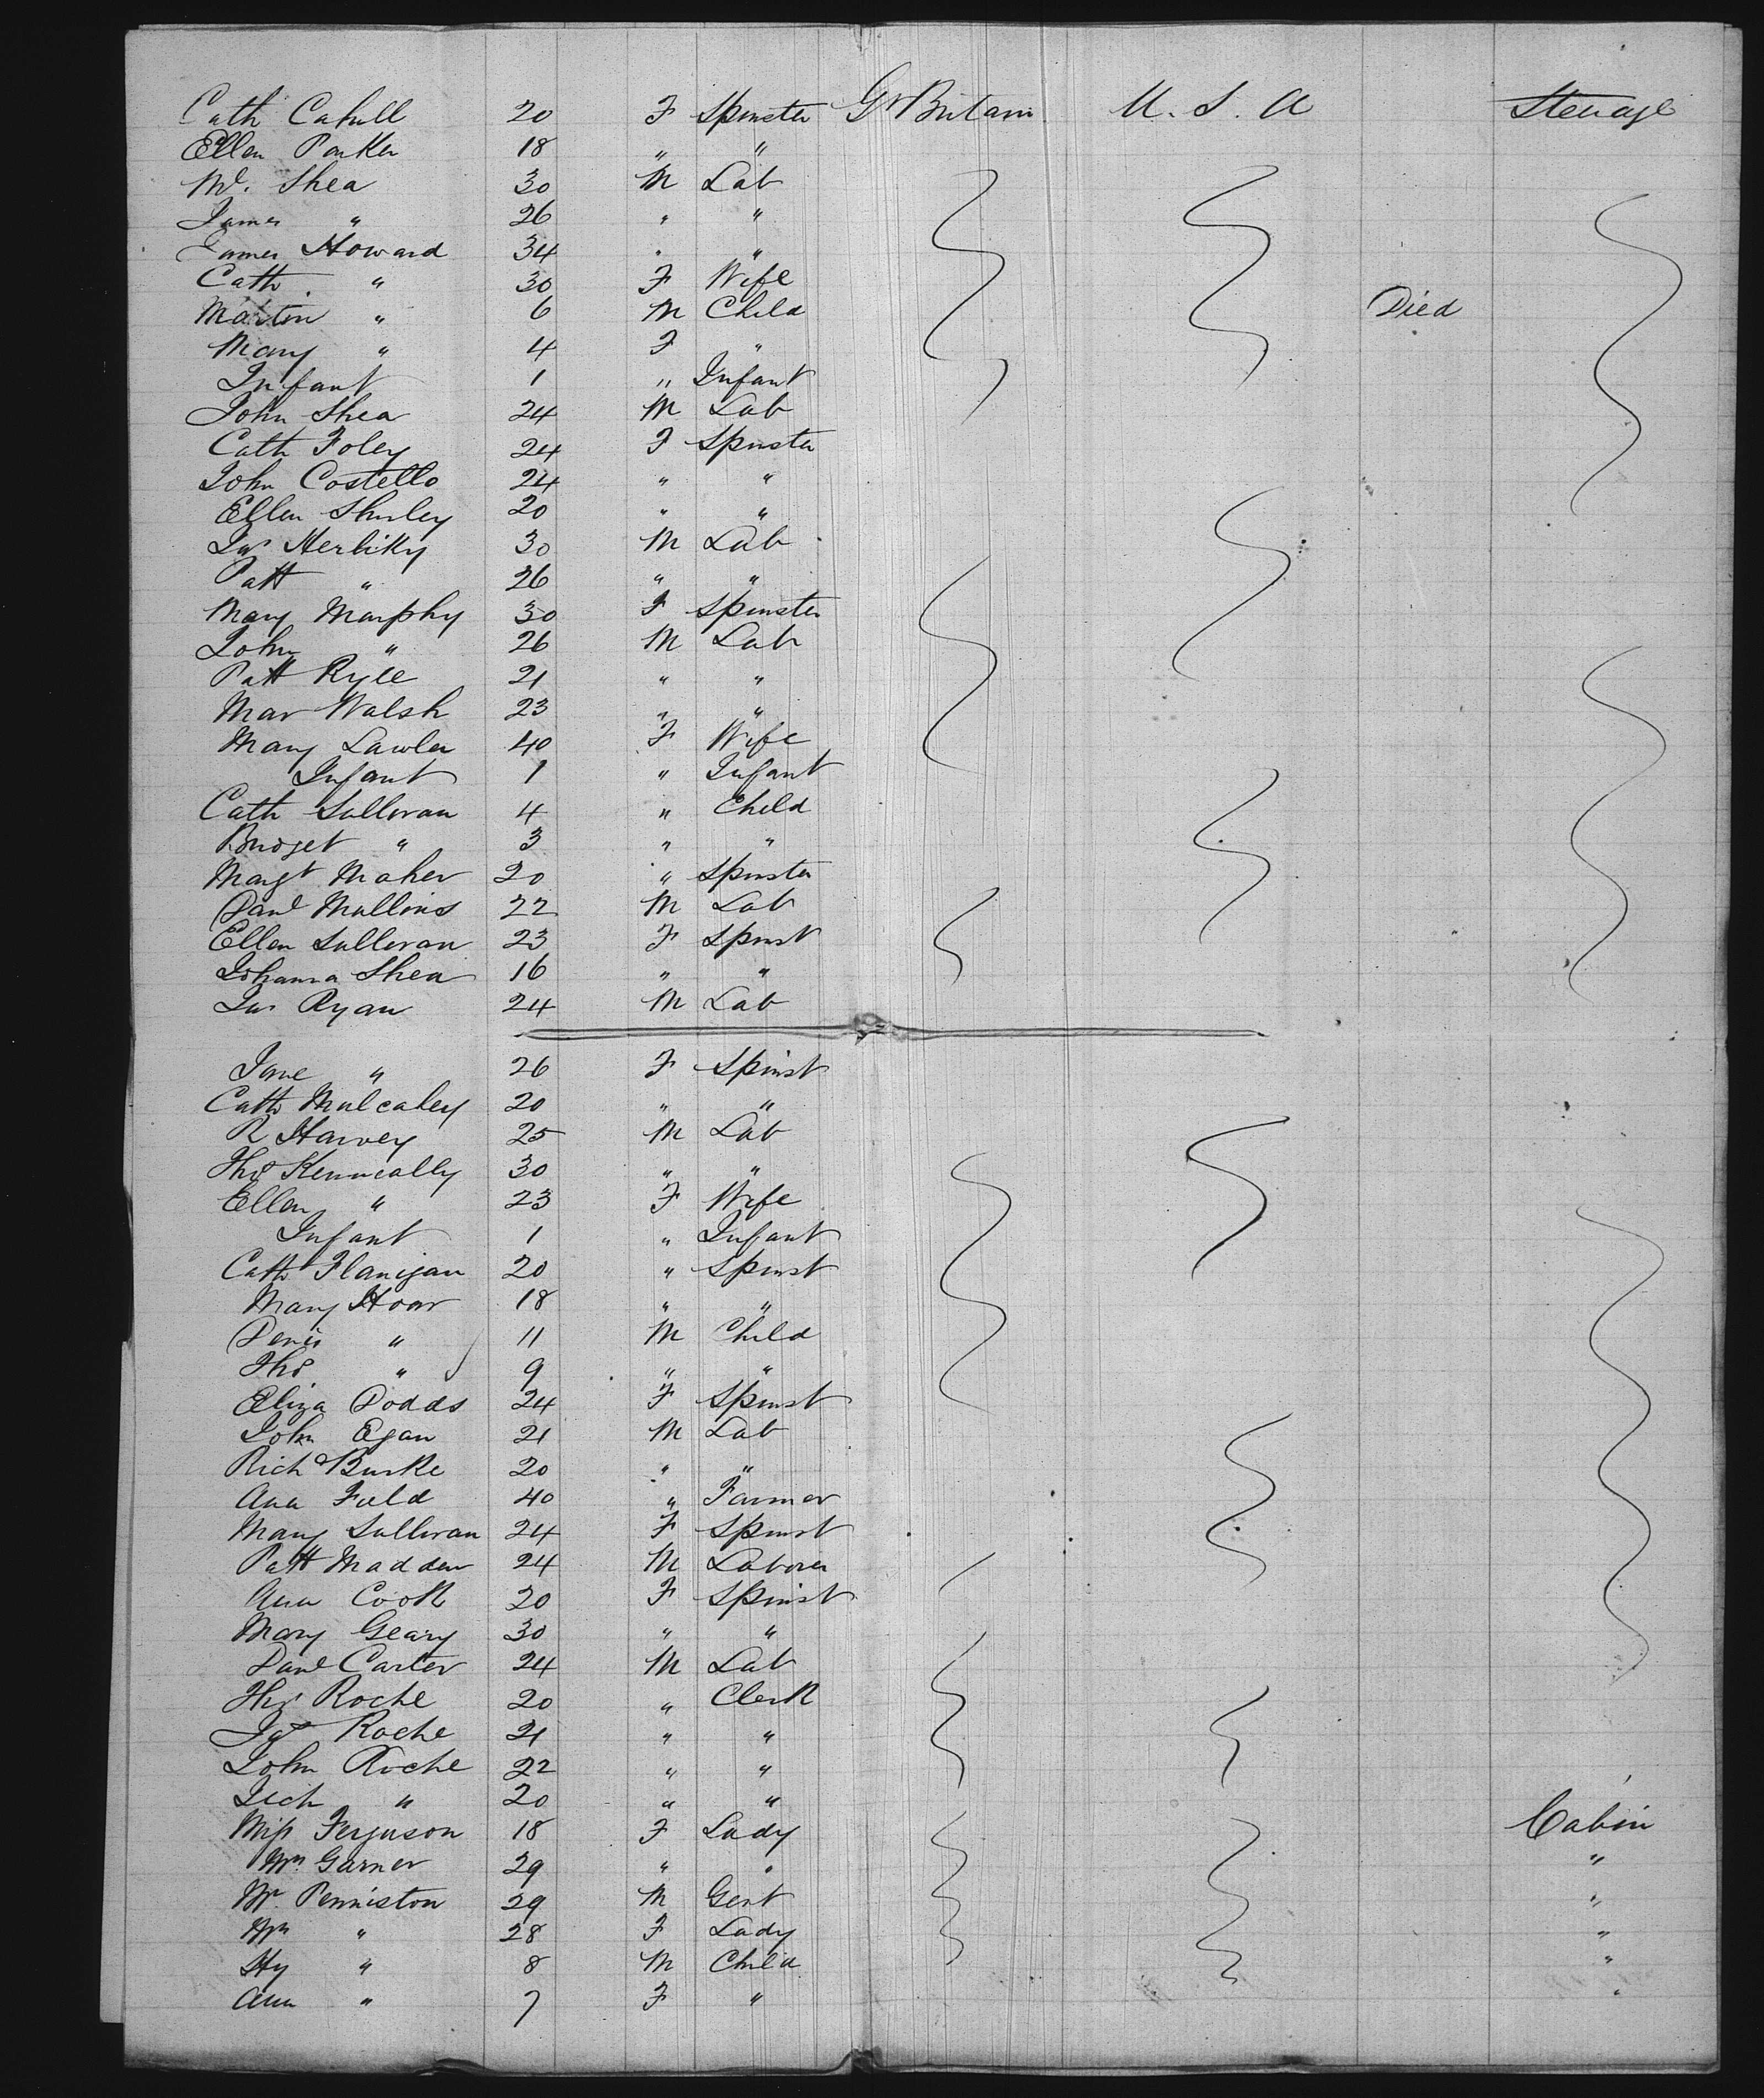 Cath Cahill 20 F Spinster Gt Britain U. S. A Steerage
Ellen Parker 18 " "
Ml. Shea 30 M Lab
James " 26 " "
James Howard 34 " "
Cath " 30 F Wife
Martin " 6 M Child Died
Mary " 4 F "
Infant 1 " Infant
John Shea 24 M Lab
Cath Foley 24 F Spinster
John Costello 24 " "
Ellen Shirley 20 " "
Jas Herlihy 30 M Lab
Patt " 26 " "
Mary Murphy 30 F Spinster
John " 26 M Lab
Patt Ryle 21 " "
Mar Walsh 23 " "
Mary Lawler 40 F Wife
Infant 1 " Infant
Cath Sullivan 4 " Child
Bridget " 3 " "
Margt Maher 20 " Spinster
Danl Mullins 22 M Lab
Ellen Sullivan 23 F Spinst
Johanna Shea 16 " "
Jas Ryan 24 M Lab
Jane " 26 F Spinst
Cath Mulcahey 20 " "
R Harvey 25 M Lab
Thos Kenneally 30 " "
Ellen " 23 F Wife
Infant 1 " Infant
Cath Flanigan 20 " Spinst
Mary Hoar 18 " "
Denis " 11 M Child
Thos " 9 " "
Eliza Dodds 24 F Spinst
John Egan 21 M Lab
Rich Burke 20 " "
Ann Field 40 " Farmer
Mary Sullivan 24 F Spinst
Patt Madden 24 M Laborer
Ann Cook 20 F Spinst
Mary Geary 30 " "
Danl Carter 24 M Lab
Thos Roche 20 " Clerk
Jas Roche 21 " "
John Roche 22 " "
" 20 " "
Miss Ferguson 18 F Lady Cabin
Mrs Garner 29 " " "
Mr. Penniston 29 M Gent "
Mrs " 28 F Lady "
Hy " 8 M Child "
Ann " 7 F " "